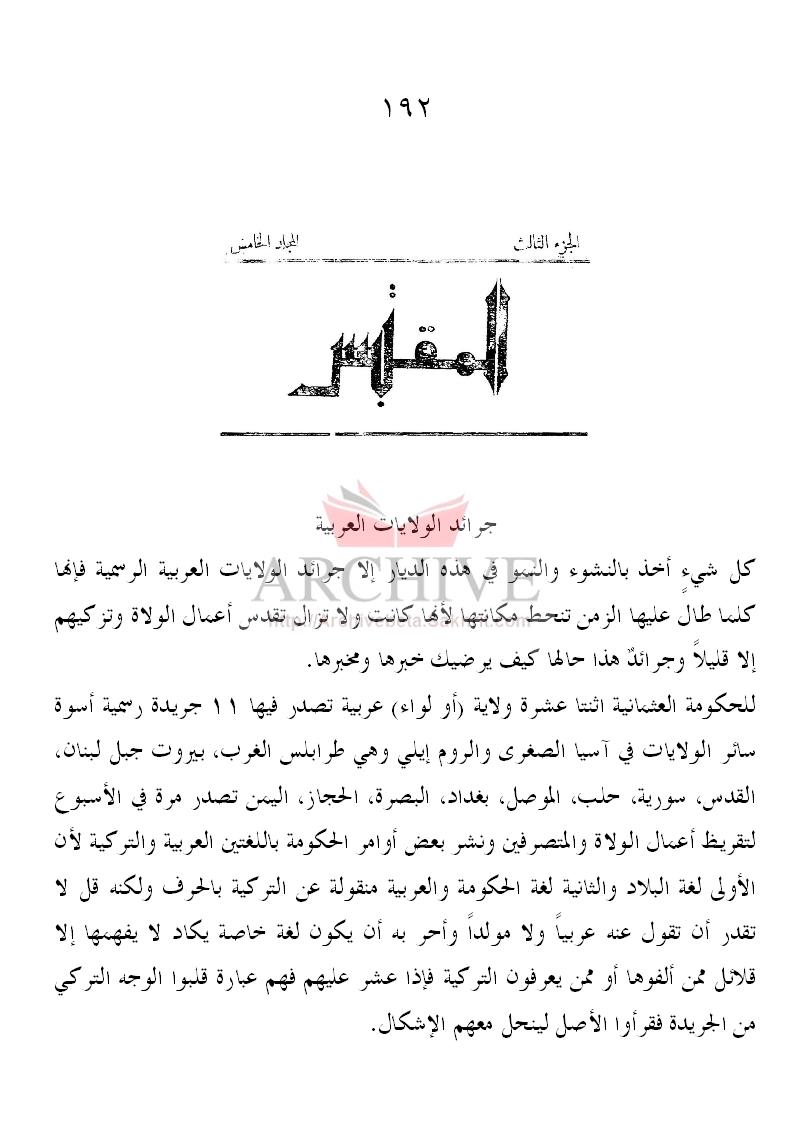 ١٩٢
الجزء الثالث
المجلد الخامس
المقتبس
جرائد الولايات العربية
ARCHIVE
http://Archivebeta.Sakhrit.com
كل شيءٍ أخذ بالنشوء والنمو في هذه الديار إلا جرائد الولايات العربية الرسمية فإنها
كلما طال عليها الزمن تنحط مكانتها لأنها كانت ولا تزال تقدس أعمال الولاة وتزكيهم
إلا قليلاً وجرائدٌ هذا حالها كيف يرضيك خبرها ومخبرها.
للحكومة العثمانية اثنتا عشرة ولاية (أو لواء) عربية تصدر فيها ١١ جريدة رسمية أسوة
سائر الولايات في آسيا الصغرى والروم إيلي وهي طرابلس الغرب، بيروت جبل لبنان،
القدس، سورية، حلب، الموصل، بغداد، البصرة، الحجاز، اليمن تصدر مرة في الأسبوع
لتقريظ أعمال الولاة والمتصرفين ونشر بعض أوامر الحكومة باللغتين العربية والتركية لأن
الأولى لغة البلاد والثانية لغة الحكومة والعربية منقولة عن التركية بالحرف ولكنه قل لا
تقدر أن تقول عنه عربياً ولا مولداً وأحر به أن يكون لغة خاصة يكاد لا يفهمها إلا
قلائل ممن ألفوها أو ممن يعرفون التركية فإذا عشر عليهم فهم عبارة قلبوا الوجه التركي
من الجريدة فقرأوا الأصل لينحل معهم الإشكال.